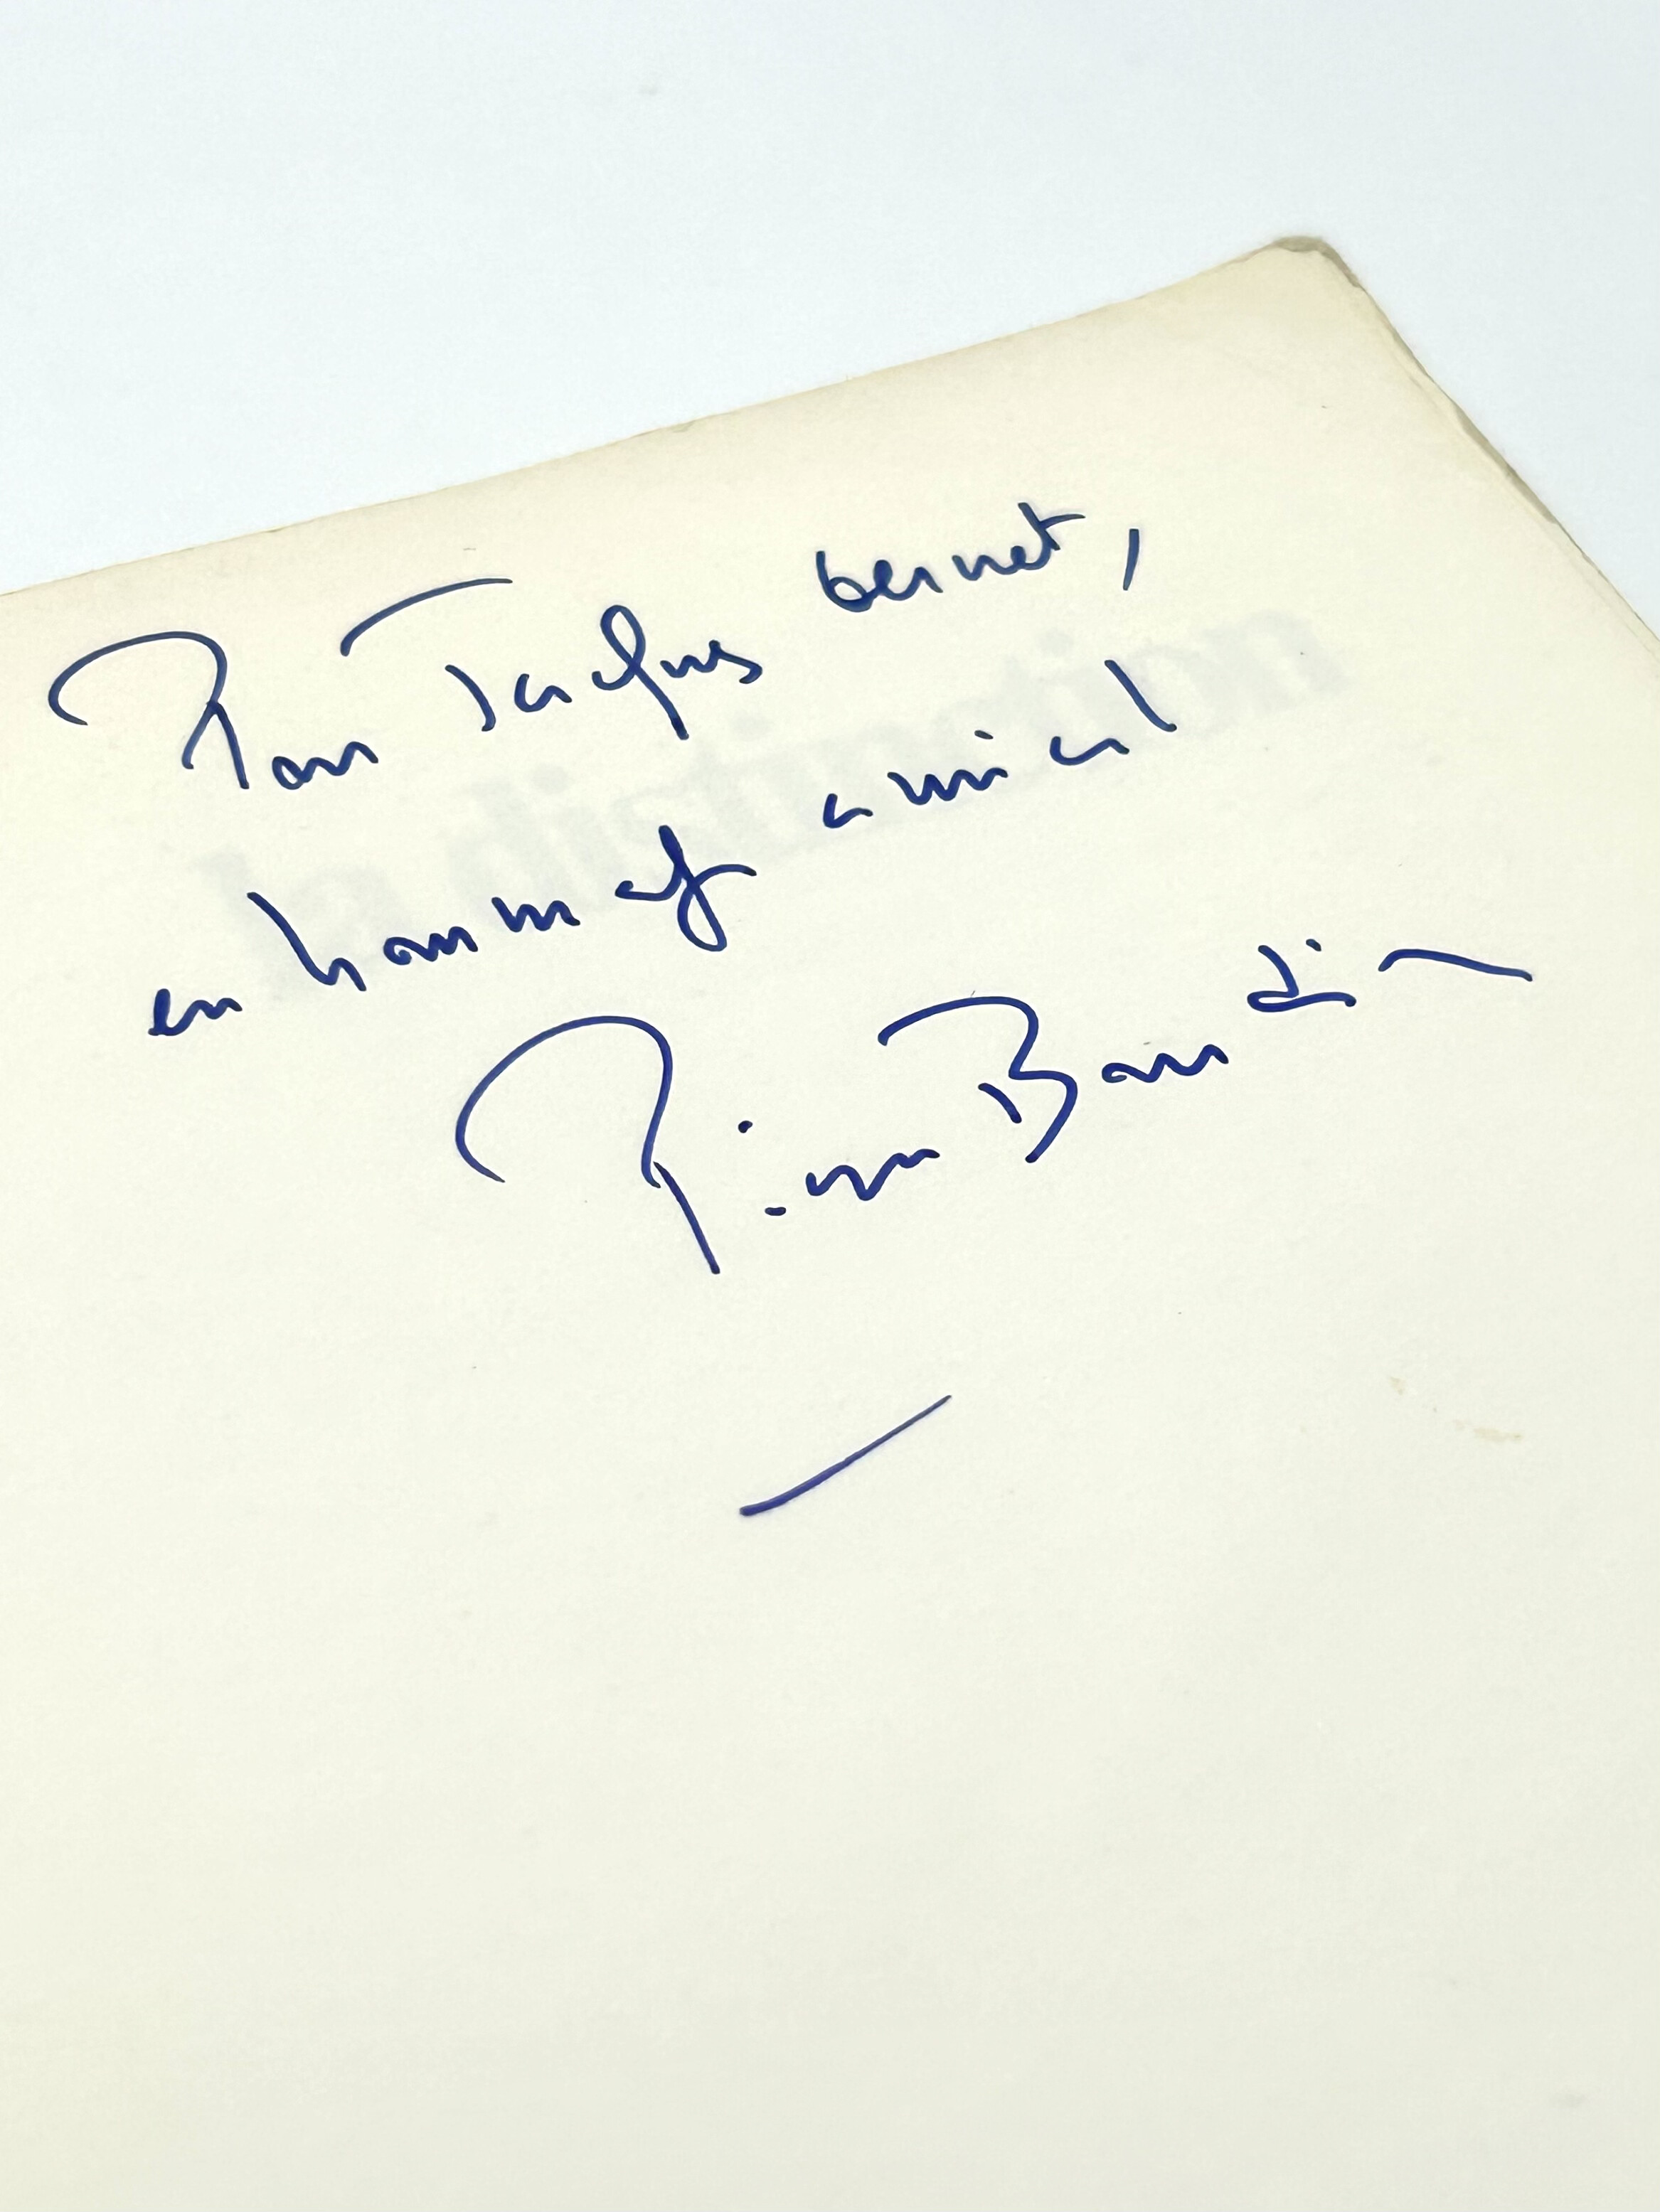 Pour Jacques bernet,
en hommage amical
Pierre Bourdieu
la distinction